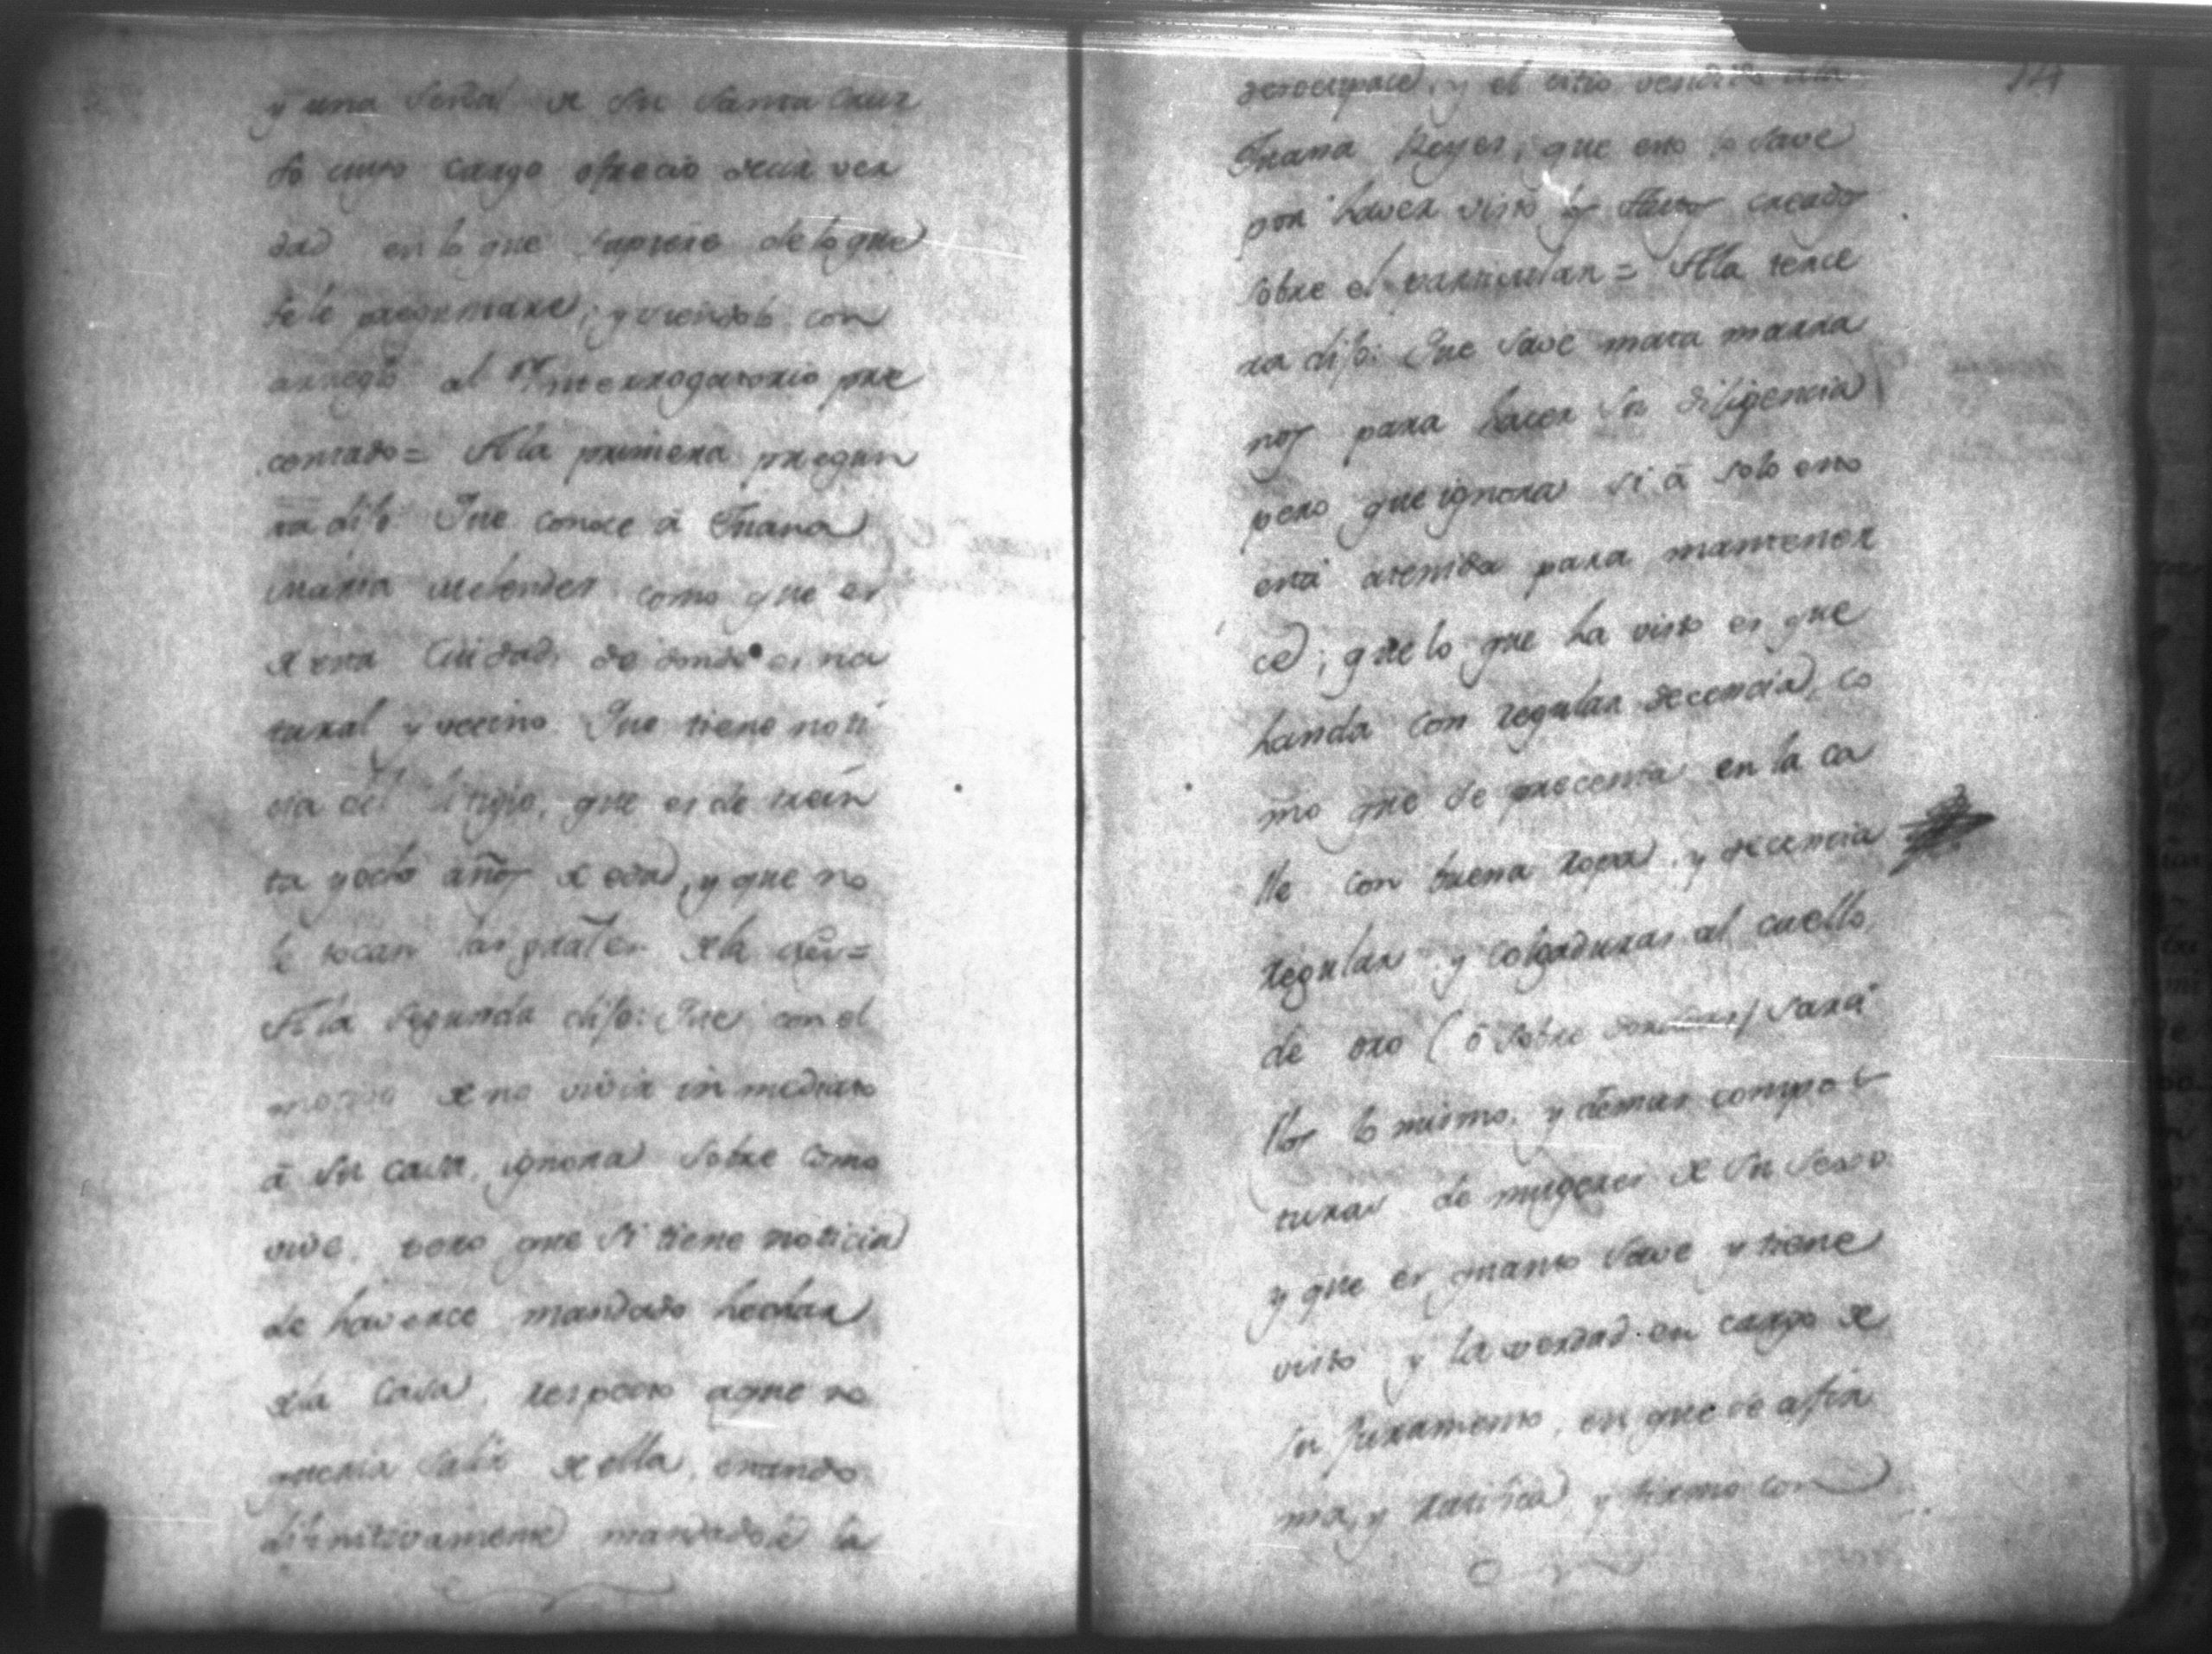 y una señal de su Santa Cruz
so cuyo cargo ofrecio decir ver
dad en lo que supiere de lo que
se le preguntare; y siendolo con
arreglo al Ynterrogatorio pre
centado = A la primera pregun
ta dijo: Que conoce á Juana
Maria Melendes como que es
de esta Ciudad, de donde es na
tural y vecino. Que tiene noti
cia del litigio, que es de trein
ta y ocho años de edad, y que no
le tocan las grãles de la Ley =
A la segunda dijo: Que con el
motivo de no vivir inmediato
á su casa, ignora sobre como
vive, pero que si tiene noticia
de haverce mandado hechar
de la Casa, respecto aque no
queria salir de ella, estando
difinitivamente mandadole la
desocupace, y el citio vendido a la
Juana Reyes, que esto lo save
por haver visto los Autos creados
sobre el particular = A la terce
ra dijo: Que save mata marra
nos para hacer su diligencia
pero que ignora si á solo esto
está atenida para mantener
ce; que lo que ha visto es que
handa con regular decencia, co
mo que se precenta en la ca
lle con buena ropa, y decencia
regular y colgaduras al cuello
de oro (ó sobre doradas) sarsi
llos lo mismo, y demas compos
turas de mugeres de su sexso
y que es quanto save y tiene
visto y la verdad en cargo de
su juramento, en que se afir
ma, y ratifica, y firmo con